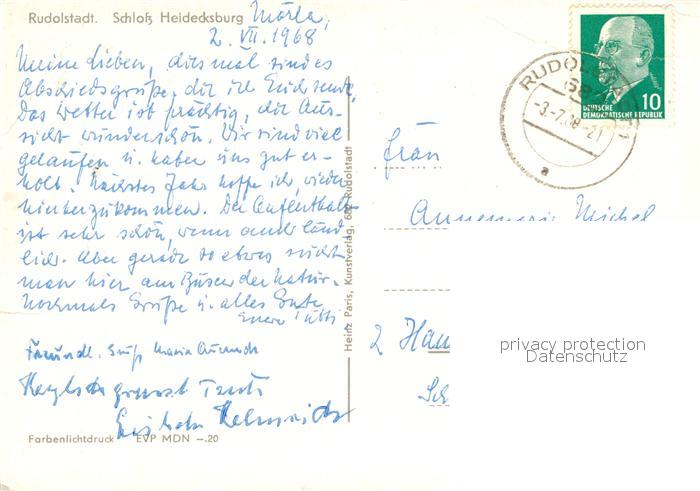 Rudolstadt. Schloß Heidecksburg
Mörla,
2. VII. 1968
Meine Lieben, diesmal sind es
Abschiedsgrüße, die ich Euch sende.
Das Wetter ist prächtig, die Aus-
sicht wunderschön. Wir sind viel
gelaufen u. haben uns gut er-
holt. Nächstes Jahr hoffe ich, wieder
hierherzukommen. Der Aufenthalt
ist sehr schön, wenn auch länd-
lich. Aber gerade so etwas sucht
man hier am Busen der Natur.
Nochmals Grüße u. alles Gute
Eure
Freundl. Gruß Maria
Herzlichst grüßt
Helmrich
Farbenlichtdruck EVP MDN –.20
Heinz Paris, Kunstverlag, 682 Rudolstadt
RUDOLSTADT 1
682
-3.-7.68-21
a
DEUTSCHE
DEMOKRATISCHE REPUBLIK
10
Frau
Annemarie Michel
2 Ham
Sch
privacy protection
Datenschutz